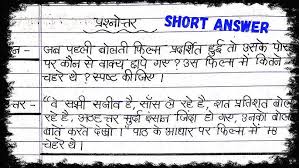 प्रश्नोत्तर SHORT ANSWER
जब पहली बोलती फिल्म प्रदर्शित हुई तो उसके पोस्
पर कौन से वाक्य छापे गए? उस फिल्म में कितने
चेहरे थे? स्पष्ट कीजिए।
"वे सभी सजीव हैं, साँस ले रहे हैं, शत प्रतिशत बोल
रहे हैं, अठहत्तर मुर्दा इंसान जिंदा हो गए, उनको बोलते
बातें करते देखो।" पाठ के आधार पर फिल्म में 78
चेहरे थे।